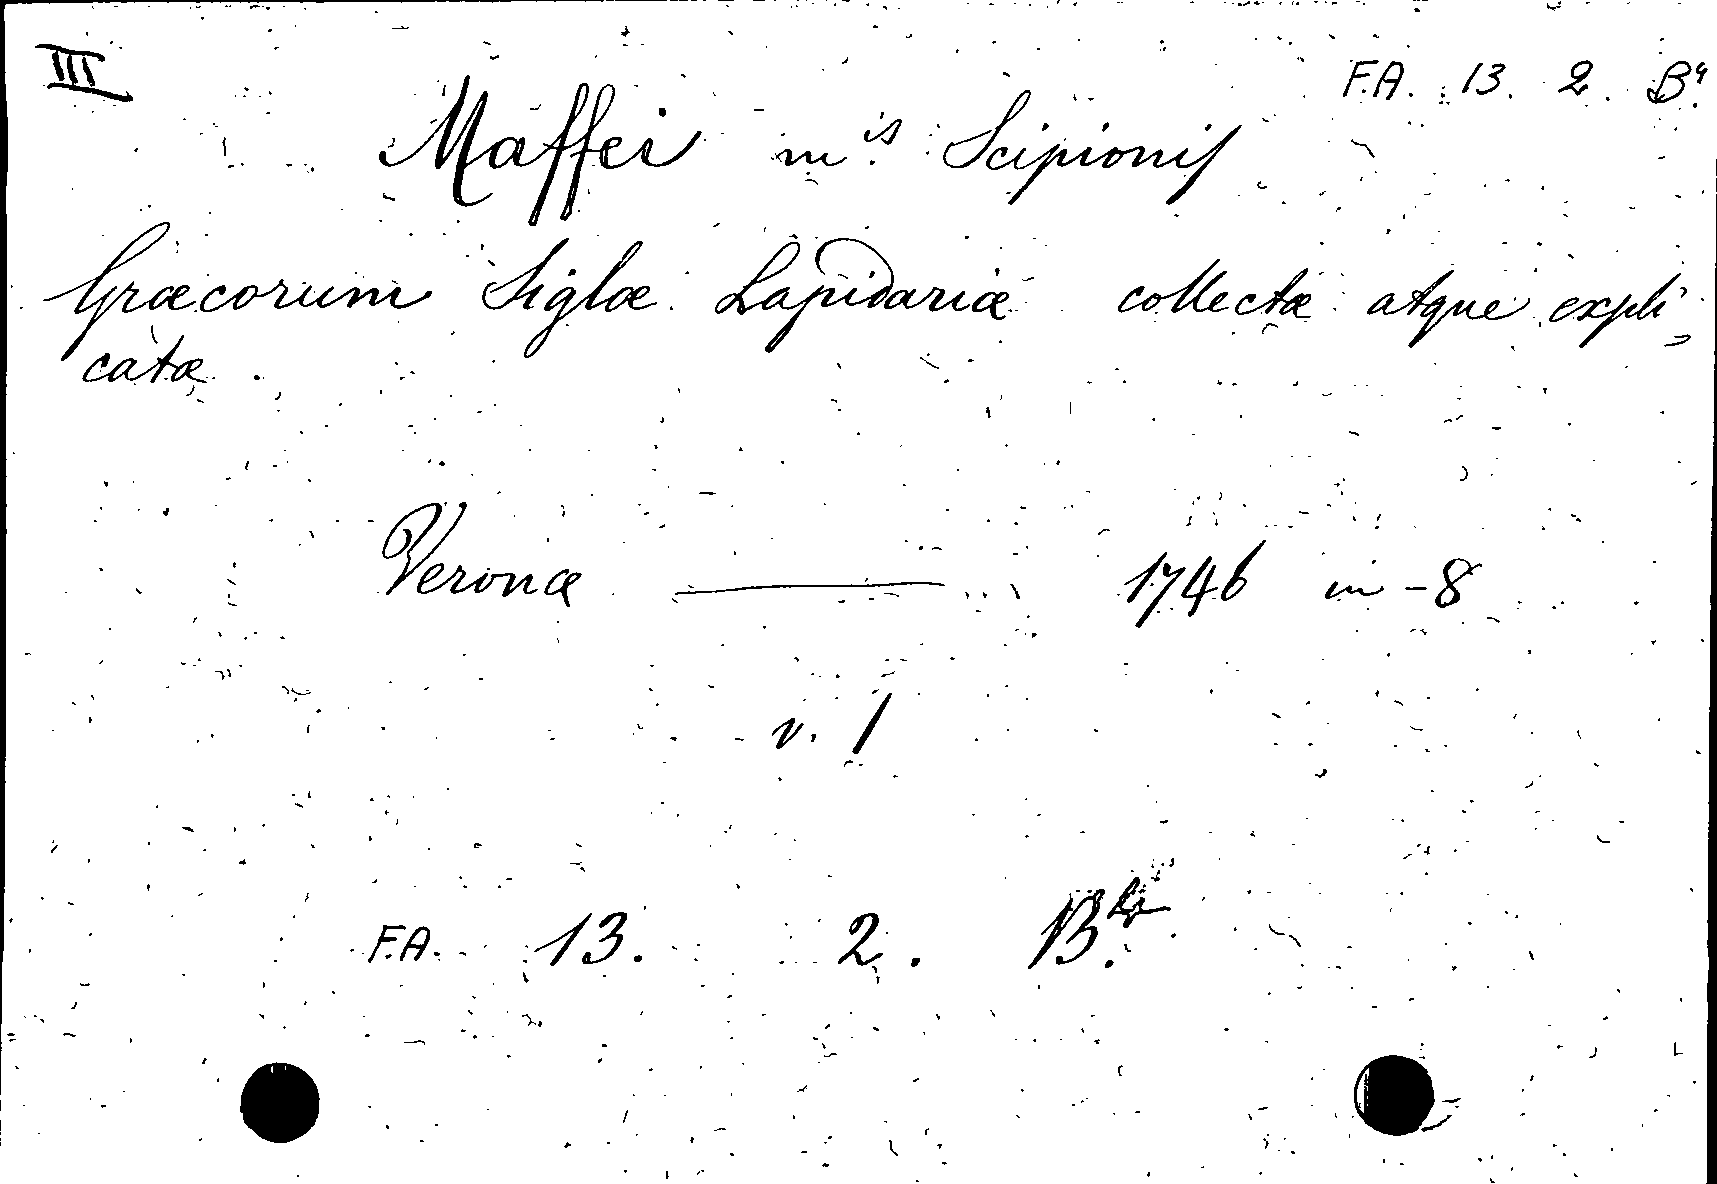 III
F.A. 13. 2. B⁴.
Maffei m.is Scipionis
Græcorum Siglæ Lapidariæ collectæ atque expli=
catæ.
Veronæ —— 1746 in-8
v. 1
F.A. 13. 2. B.